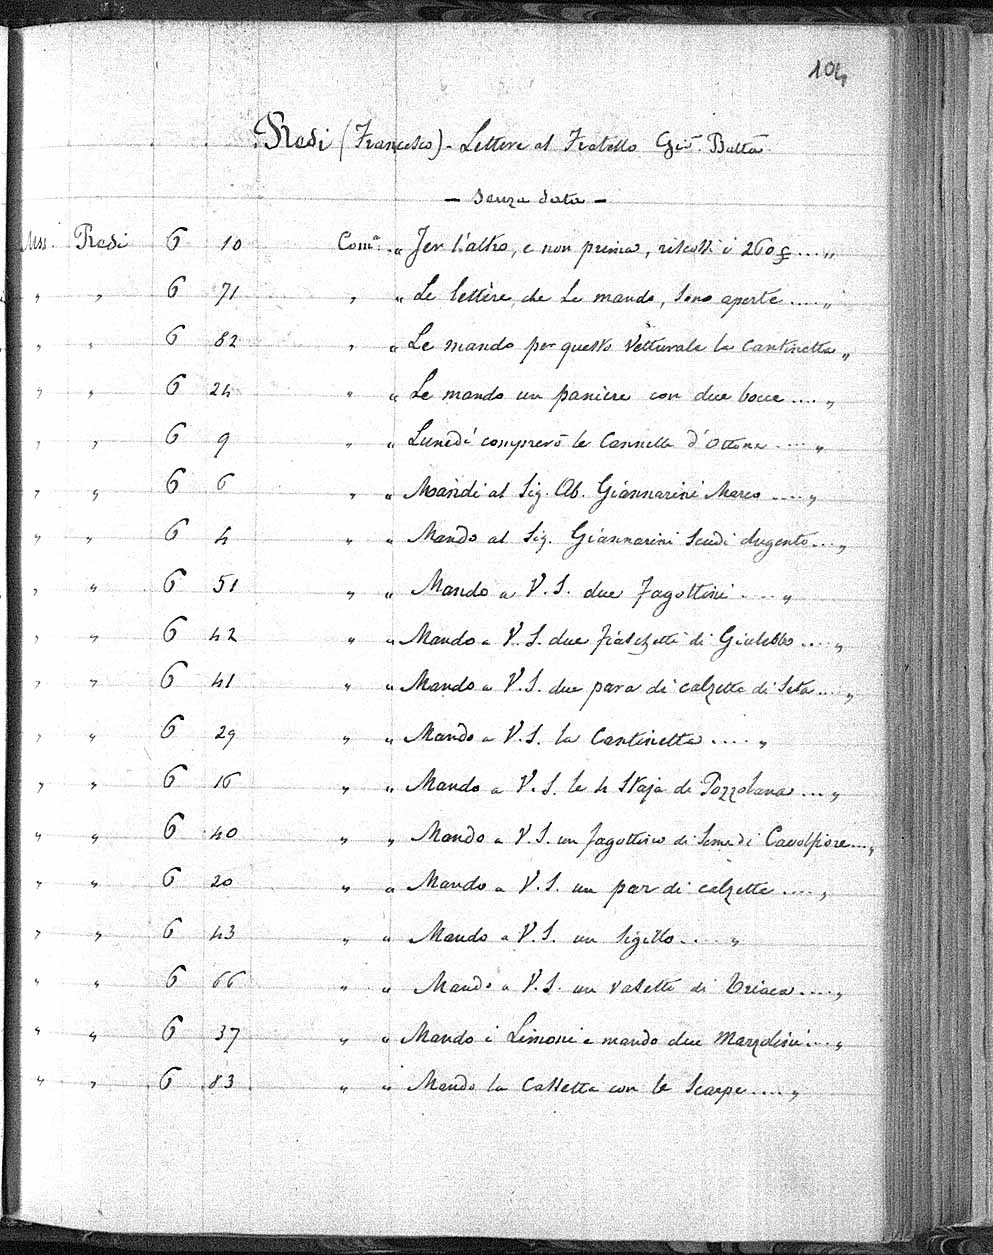 104
Redi (Francesco) - Lettere al Fratello Gio. Batta
- Senza data -
Mss. Redi 6 10 Com.e „ Jer l'altro, e non prima, riscossi i 260 ... „
„ „ 6 71 „ „ Le lettere, che Le mando, sono aperte .... „
„ „ 6 82 „ „ Le mando per questo Vetturale la Cantinetta „
„ „ 6 24 „ „ Le mando un paniere con due bocce .... „
„ „ 6 9 „ „ Lunedì comprerò le Cannelle d'Ottone .... „
„ „ 6 6 „ „ Mandi al Sig. Ab. Giannarini Marco .... „
„ „ 6 4 „ „ Mando al Sig. Giannarini Scudi dugento ... „
„ „ 6 51 „ „ Mando a V. S. due Fagottini .... „
„ „ 6 42 „ „ Mando a V. S. due fiaschetti di Giulebbo .... „
„ „ 6 41 „ „ Mando a V. S. due para di calzette di Seta .... „
„ „ 6 29 „ „ Mando a V. S. la Cantinetta .... „
„ „ 6 16 „ „ Mando a V. S. le 4 Staja di Pozzolana ... „
„ „ 6 40 „ „ Mando a V. S. un fagottino di Seme di Cavolfiore ... „
„ „ 6 20 „ „ Mando a V. S. un par di calzette .... „
„ „ 6 43 „ „ Mando a V. S. un Sigillo .... „
„ „ 6 66 „ „ Mando a V. S. un vasetto di Triaca .... „
„ „ 6 37 „ „ Mando i Limoni e mando due Marzolini ... „
„ „ 6 83 „ „ Mando la Cassetta con le Scarpe .... „